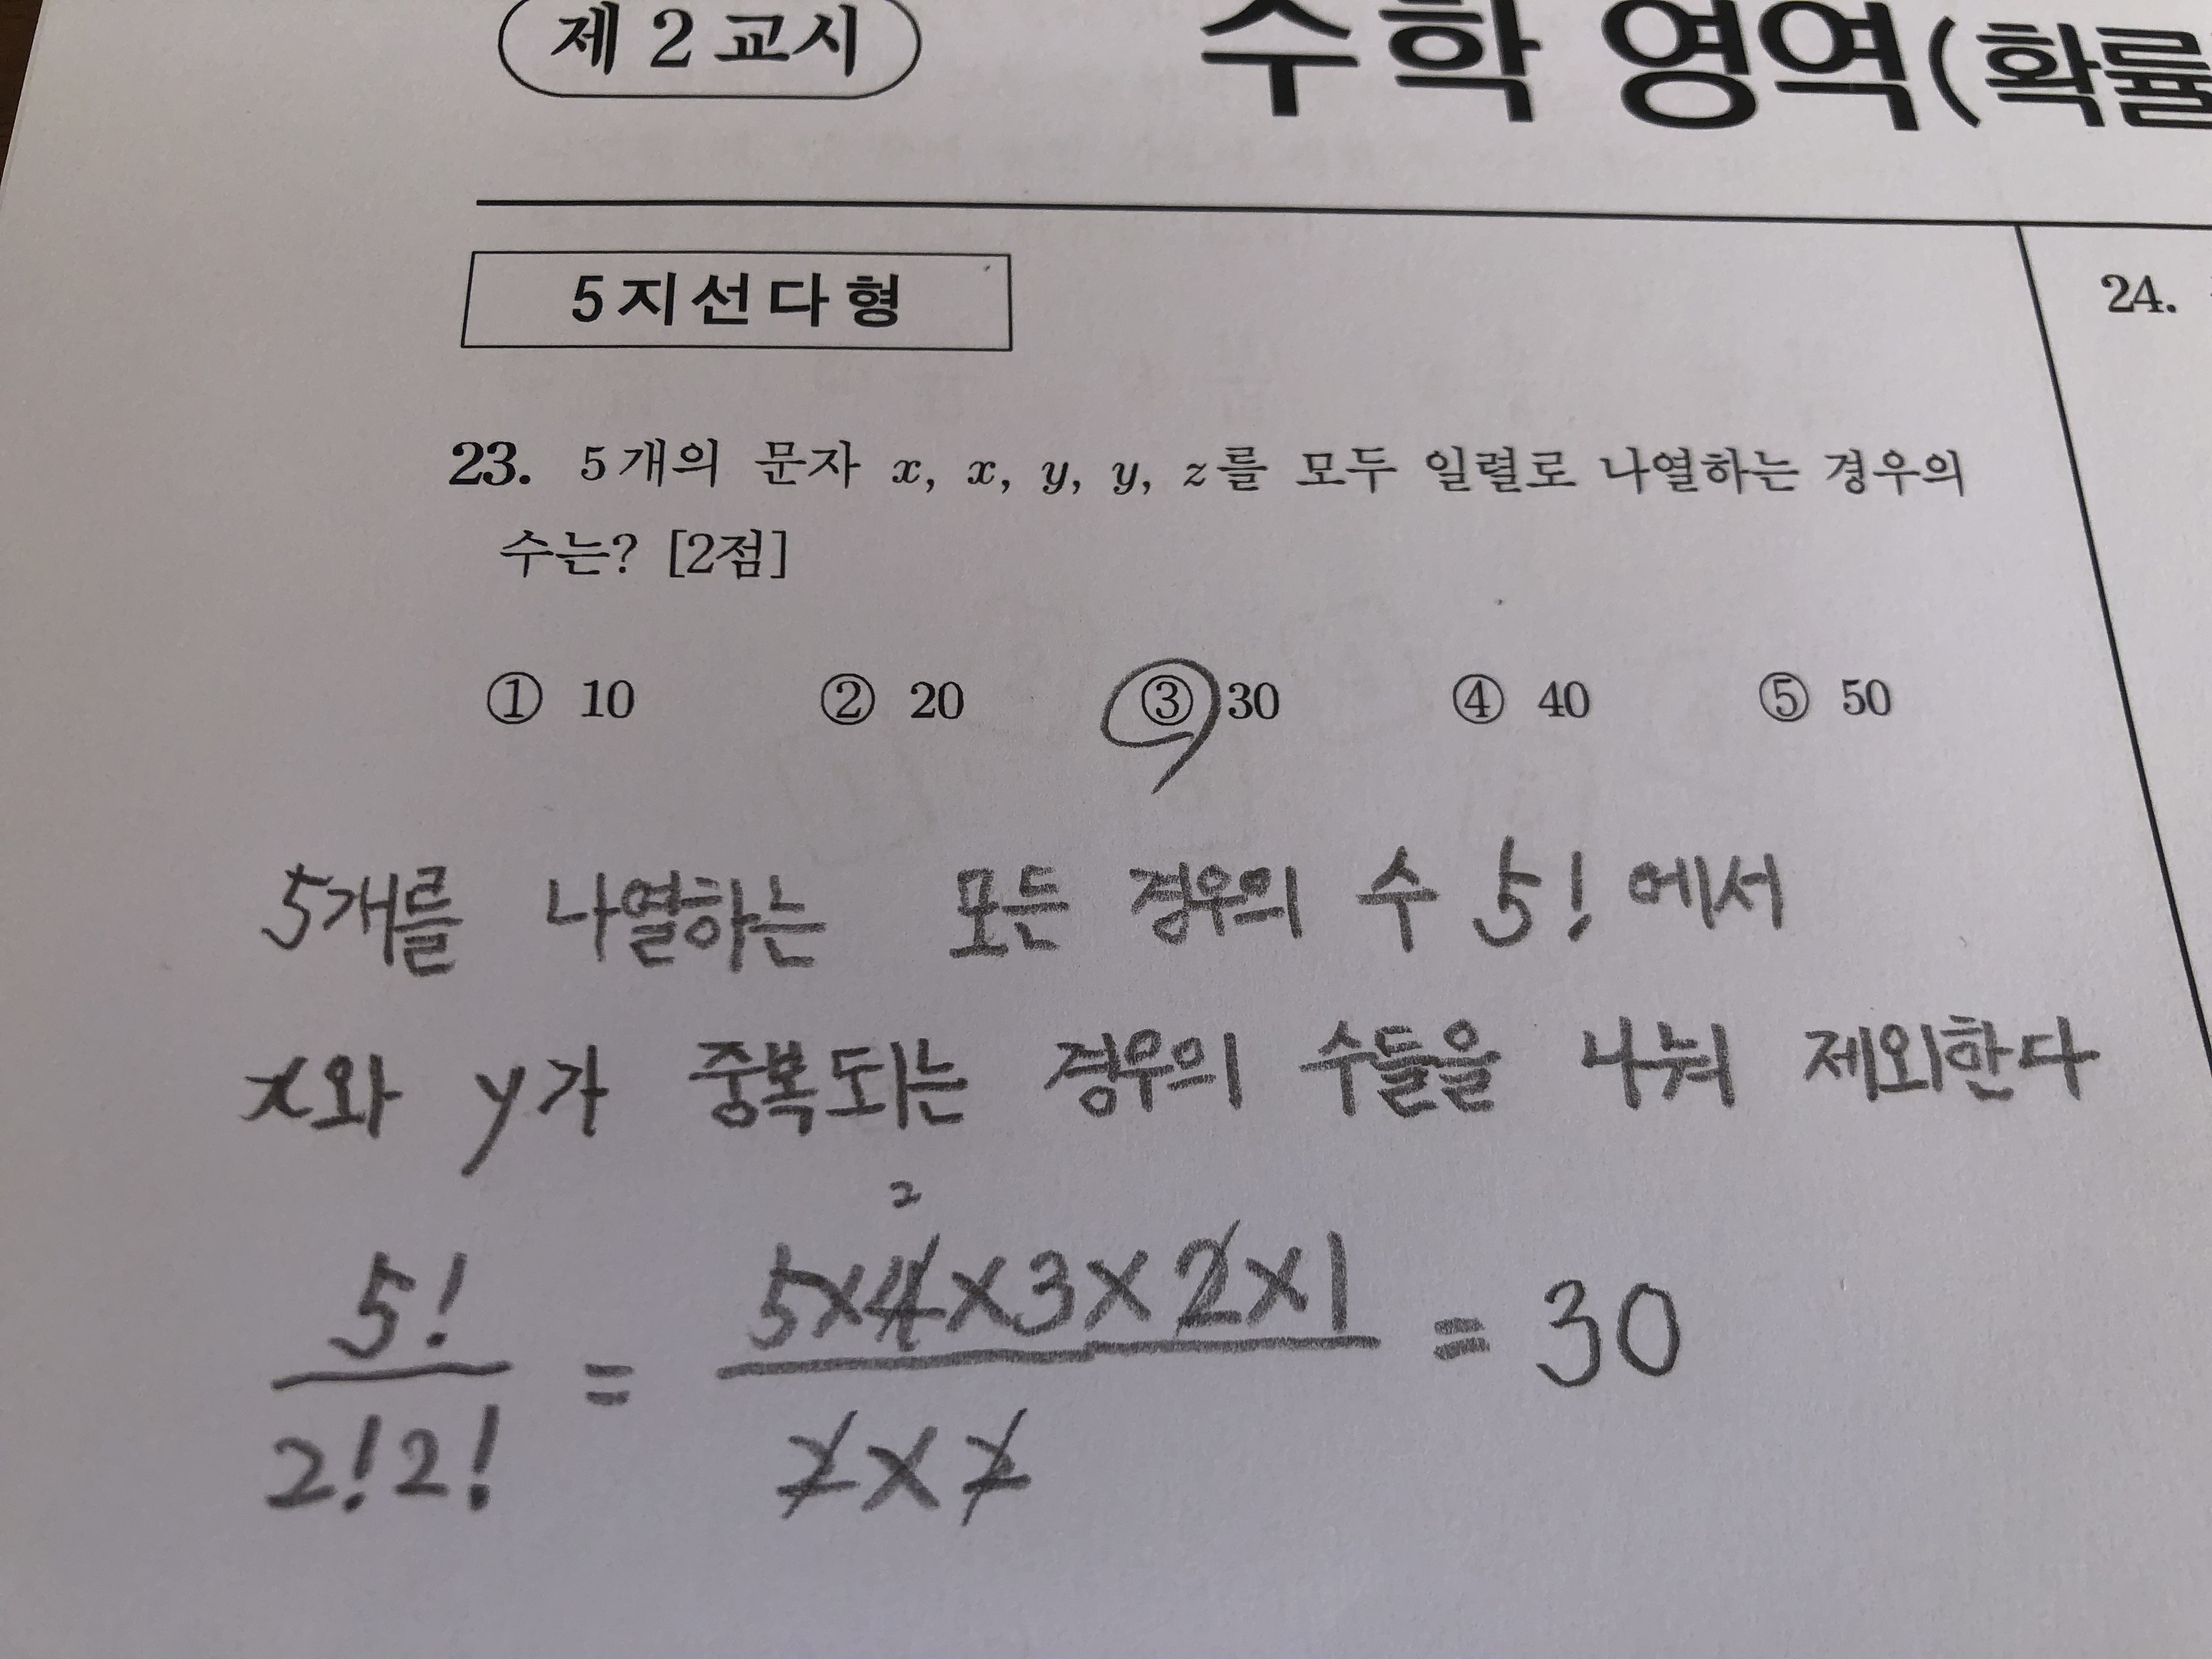 제 2 교시
수학 영역(확률
5지선다형
23. 5개의 문자 x, x, y, y, z를 모두 일렬로 나열하는 경우의
수는? [2점]
① 10 ② 20 ③ 30 ④ 40 ⑤ 50
5개를 나열하는 모든 경우의 수 5! 에서
x와 y가 중복되는 경우의 수들을 나눠 제외한다
2
5! / 2!2! = 5×4×3×2×1 / 2×2 = 30
24.